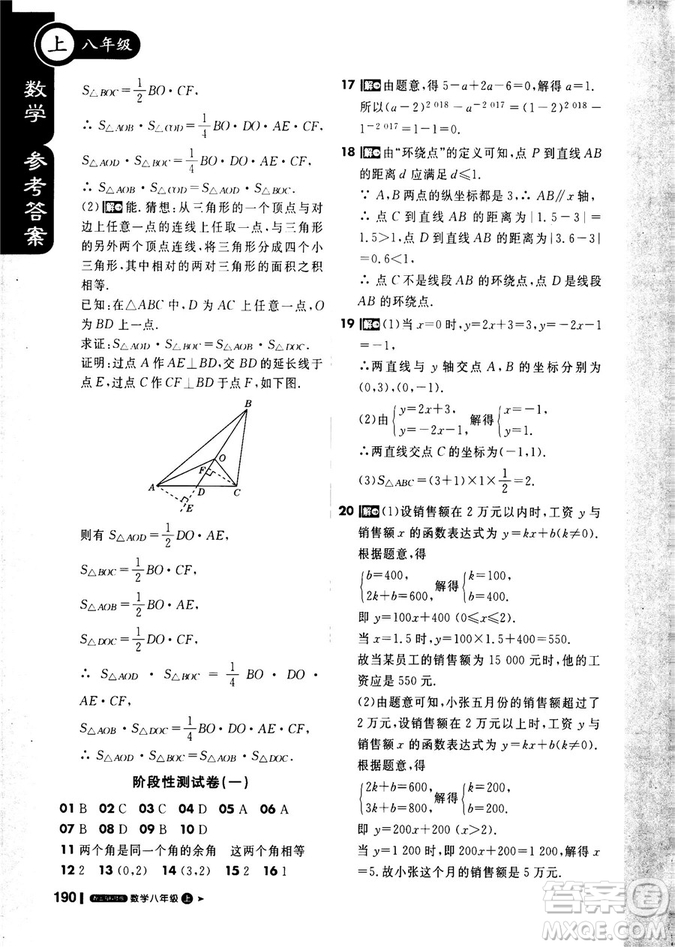 上 八年级
数学 参考答案
S△BOC=1/2 BO·CF,
∴ S△AOB·S△COD=1/4 BO·DO·AE·CF,
S△AOD·S△BOC=1/4 BO·DO·CF·AE,
∴ S△AOB·S△COD=S△AOD·S△BOC.
(2)解 能. 猜想:从三角形的一个顶点与对
边上任意一点的连线上任取一点,与三角形
的另外两个顶点连线,将三角形分成四个小
三角形,其中相对的两对三角形的面积之积
相等.
已知:在△ABC中,D为AC上任意一点,O
为BD上一点.
求证:S△AOD·S△BOC=S△AOB·S△DOC.
证明:过点A作AE⊥BD,交BD的延长线于
点E,过点C作CF⊥BD于点F,如下图.
B
O
F
A D C
E
则有 S△AOD=1/2 DO·AE,
S△BOC=1/2 BO·CF,
S△AOB=1/2 BO·AE,
S△DOC=1/2 DO·CF,
∴ S△AOD·S△BOC=1/4 BO·DO·
AE·CF,
S△AOB·S△DOC=1/4 BO·DO·AE·CF,
∴ S△AOD·S△BOC=S△AOB·S△DOC.
阶段性测试卷(一)
01 B 02 C 03 C 04 D 05 A 06 A
07 B 08 B 09 D 10 D
11 两个角是同一个角的余角 这两个角相等
12 2 13 (0,2) 14 (3,2) 15 2 16 1
190 数学八年级 上
17 解 由题意,得5-a+2a-6=0,解得a=1.
所以(a-2)^2 018-a^-2 017=(1-2)^2 018-
1^-2 017=1-1=0.
18 解 由“环绕点”的定义可知,点P到直线AB
的距离d应满足d≤1.
∵ A,B两点的纵坐标都是3,∴ AB∥x轴,
∴ 点C到直线AB的距离为|1.5-3|=
1.5>1,点D到直线AB的距离为|3.6-3|
=0.6<1,
∴ 点C不是线段AB的环绕点,点D是线段
AB的环绕点.
19 解 (1)当x=0时,y=2x+3=3,y=-2x
-1=-1,
∴两直线与y轴交点A,B的坐标分别为
(0,3),(0,-1).
(2)由{y=2x+3, y=-2x-1, 解得{x=-1, y=1.
∴两直线交点C的坐标为(-1,1).
(3)S△ABC=(3+1)×1×1/2=2.
20 解 (1)设销售额在2万元以内时,工资y与
销售额x的函数表达式为y=kx+b(k≠0).
根据题意,得
{b=400, 2k+b=600, 解得{k=100, b=400.
即y=100x+400(0≤x≤2).
当x=1.5时,y=150+400=550.
故当某员工的销售额为15 000元时,他的工
资应是550元.
(2)由题意可知,小张五月份的销售额超过了
2万元,设销售额在2万元以上时,工资y与
销售额x的函数表达式为y=kx+b(k≠0).
根据题意,得
{2k+b=600, 3k+b=800, 解得{k=200, b=200.
即y=200x+200(x>2).
当y=1 300时,1 300=200x+200,
∴ x=5.5. 故小张这个月的销售额是5.5万元.
作业精灵